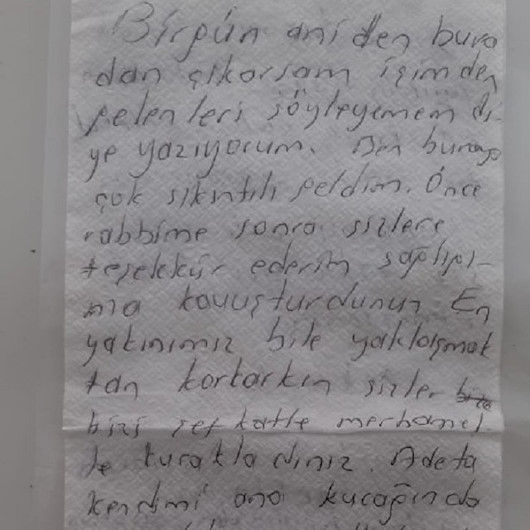 Birgün aniden bura
dan çıkarsam içimden
gelenleri söyleyemem di-
ye yazıyorum. Ben buraya
çok sıkıntılı geldim. Önce
rabbime sonra sizlere
teşekkür ederim sağlığı-
ma kavuşturdunuz En
yakınımız bile yaklaşmak
tan korkarken sizler
bizi şefkatle merhamet
le kucakladınız. Adeta
kendimi ana kucağında